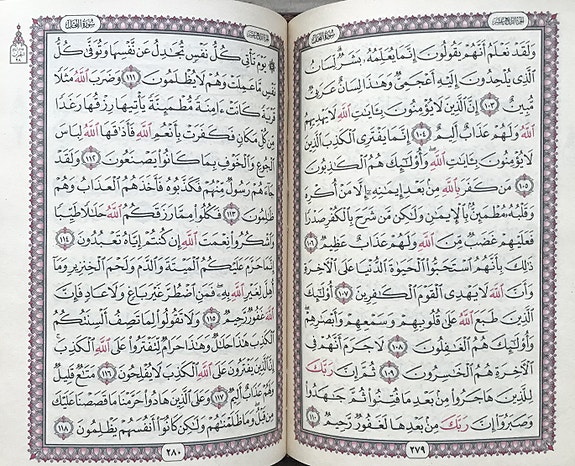 الجزء الرابع عشر
سُورَةُ النَّحْلِ
وَلَقَدْ نَعْلَمُ أَنَّهُمْ يَقُولُونَ إِنَّمَا يُعَلِّمُهُۥ بَشَرٌ لِّسَانُ
ٱلَّذِى يُلْحِدُونَ إِلَيْهِ أَعْجَمِىٌّ وَهَٰذَا لِسَانٌ عَرَبِىٌّ
مُّبِينٌ ١٠٣ إِنَّ ٱلَّذِينَ لَا يُؤْمِنُونَ بِـَٔايَٰتِ ٱللَّهِ لَا يَهْدِيهِمُ
ٱللَّهُ وَلَهُمْ عَذَابٌ أَلِيمٌ ١٠٤ إِنَّمَا يَفْتَرِى ٱلْكَذِبَ ٱلَّذِينَ
لَا يُؤْمِنُونَ بِـَٔايَٰتِ ٱللَّهِ وَأُو۟لَٰٓئِكَ هُمُ ٱلْكَٰذِبُونَ
١٠٥ مَن كَفَرَ بِٱللَّهِ مِنۢ بَعْدِ إِيمَٰنِهِۦٓ إِلَّا مَنْ أُكْرِهَ
وَقَلْبُهُۥ مُطْمَئِنٌّۢ بِٱلْإِيمَٰنِ وَلَٰكِن مَّن شَرَحَ بِٱلْكُفْرِ صَدْرًا
فَعَلَيْهِمْ غَضَبٌ مِّنَ ٱللَّهِ وَلَهُمْ عَذَابٌ عَظِيمٌ ١٠٦
ذَٰلِكَ بِأَنَّهُمُ ٱسْتَحَبُّوا۟ ٱلْحَيَوٰةَ ٱلدُّنْيَا عَلَى ٱلْـَٔاخِرَةِ
وَأَنَّ ٱللَّهَ لَا يَهْدِى ٱلْقَوْمَ ٱلْكَٰفِرِينَ ١٠٧ أُو۟لَٰٓئِكَ
ٱلَّذِينَ طَبَعَ ٱللَّهُ عَلَىٰ قُلُوبِهِمْ وَسَمْعِهِمْ وَأَبْصَٰرِهِمْ
وَأُو۟لَٰٓئِكَ هُمُ ٱلْغَٰفِلُونَ ١٠٨ لَا جَرَمَ أَنَّهُمْ فِى
ٱلْـَٔاخِرَةِ هُمُ ٱلْخَٰسِرُونَ ١٠٩ ثُمَّ إِنَّ رَبَّكَ
لِلَّذِينَ هَاجَرُوا۟ مِنۢ بَعْدِ مَا فُتِنُوا۟ ثُمَّ جَٰهَدُوا۟
وَصَبَرُوٓا۟ إِنَّ رَبَّكَ مِنۢ بَعْدِهَا لَغَفُورٌ رَّحِيمٌ ١١٠
٢٧٩
الجزء الرابع عشر
سُورَةُ النَّحْلِ
يَوْمَ تَأْتِى كُلُّ نَفْسٍ تُجَٰدِلُ عَن نَّفْسِهَا وَتُوَفَّىٰ كُلُّ
نَفْسٍ مَّا عَمِلَتْ وَهُمْ لَا يُظْلَمُونَ ١١١ وَضَرَبَ ٱللَّهُ مَثَلًا
قَرْيَةً كَانَتْ ءَامِنَةً مُّطْمَئِنَّةً يَأْتِيهَا رِزْقُهَا رَغَدًا
مِّن كُلِّ مَكَانٍ فَكَفَرَتْ بِأَنْعُمِ ٱللَّهِ فَأَذَٰقَهَا ٱللَّهُ لِبَاسَ
ٱلْجُوعِ وَٱلْخَوْفِ بِمَا كَانُوا۟ يَصْنَعُونَ ١١٢ وَلَقَدْ
جَآءَهُمْ رَسُولٌ مِّنْهُمْ فَكَذَّبُوهُ فَأَخَذَهُمُ ٱلْعَذَابُ وَهُمْ
ظَٰلِمُونَ ١١٣ فَكُلُوا۟ مِمَّا رَزَقَكُمُ ٱللَّهُ حَلَٰلًا طَيِّبًا
وَٱشْكُرُوا۟ نِعْمَتَ ٱللَّهِ إِن كُنتُمْ إِيَّاهُ تَعْبُدُونَ ١١٤
إِنَّمَا حَرَّمَ عَلَيْكُمُ ٱلْمَيْتَةَ وَٱلدَّمَ وَلَحْمَ ٱلْخِنزِيرِ وَمَآ
أُهِلَّ لِغَيْرِ ٱللَّهِ بِهِۦ فَمَنِ ٱضْطُرَّ غَيْرَ بَاغٍ وَلَا عَادٍ فَإِنَّ
ٱللَّهَ غَفُورٌ رَّحِيمٌ ١١٥ وَلَا تَقُولُوا۟ لِمَا تَصِفُ أَلْسِنَتُكُمُ
ٱلْكَذِبَ هَٰذَا حَلَٰلٌ وَهَٰذَا حَرَامٌ لِّتَفْتَرُوا۟ عَلَى ٱللَّهِ ٱلْكَذِبَ
إِنَّ ٱلَّذِينَ يَفْتَرُونَ عَلَى ٱللَّهِ ٱلْكَذِبَ لَا يُفْلِحُونَ ١١٦ مَتَٰعٌ قَلِيلٌ
وَلَهُمْ عَذَابٌ أَلِيمٌ ١١٧ وَعَلَى ٱلَّذِينَ هَادُوا۟ حَرَّمْنَا مَا قَصَصْنَا عَلَيْكَ
مِن قَبْلُ وَمَا ظَلَمْنَٰهُمْ وَلَٰكِن كَانُوٓا۟ أَنفُسَهُمْ يَظْلِمُونَ ١١٨
٢٨٠